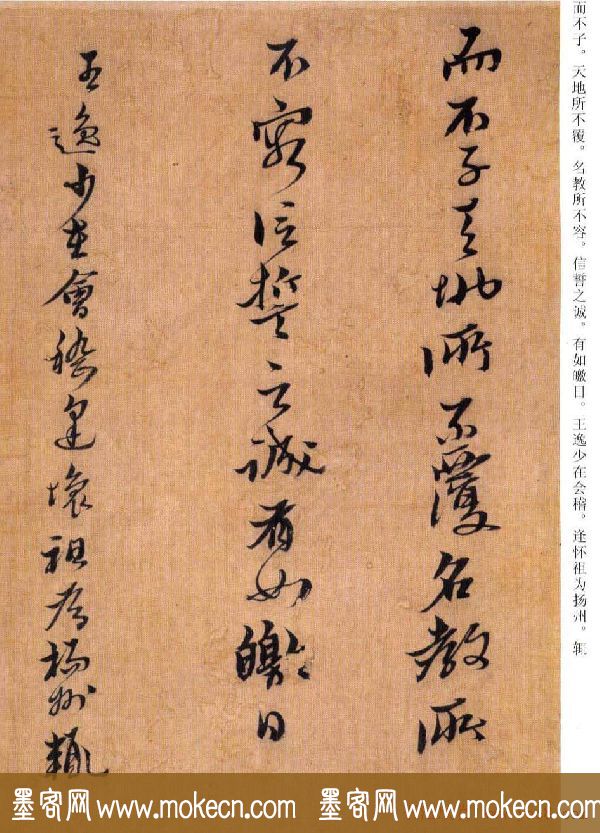 而不子。天地所不覆。名教所不容。信誓之诚。有如皦日。王逸少在会稽。逢怀祖为扬州。辄
而不子天地所不覆名教所
不容信誓之誠有如皦日
王逸少在會稽逢懷祖為揚州輒
墨客网 www.mokecn.com 墨客网 www.mokecn.com